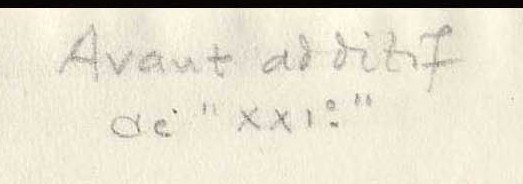 Avant additif
de "XXIº"